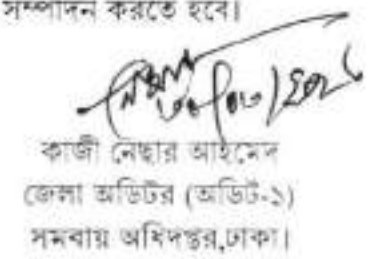 সম্পাদন করতে হবে।
কাজী নেছার আহমেদ
জেলা অডিটর (অডিট-১)
সমবায় অধিদপ্তর,ঢাকা।